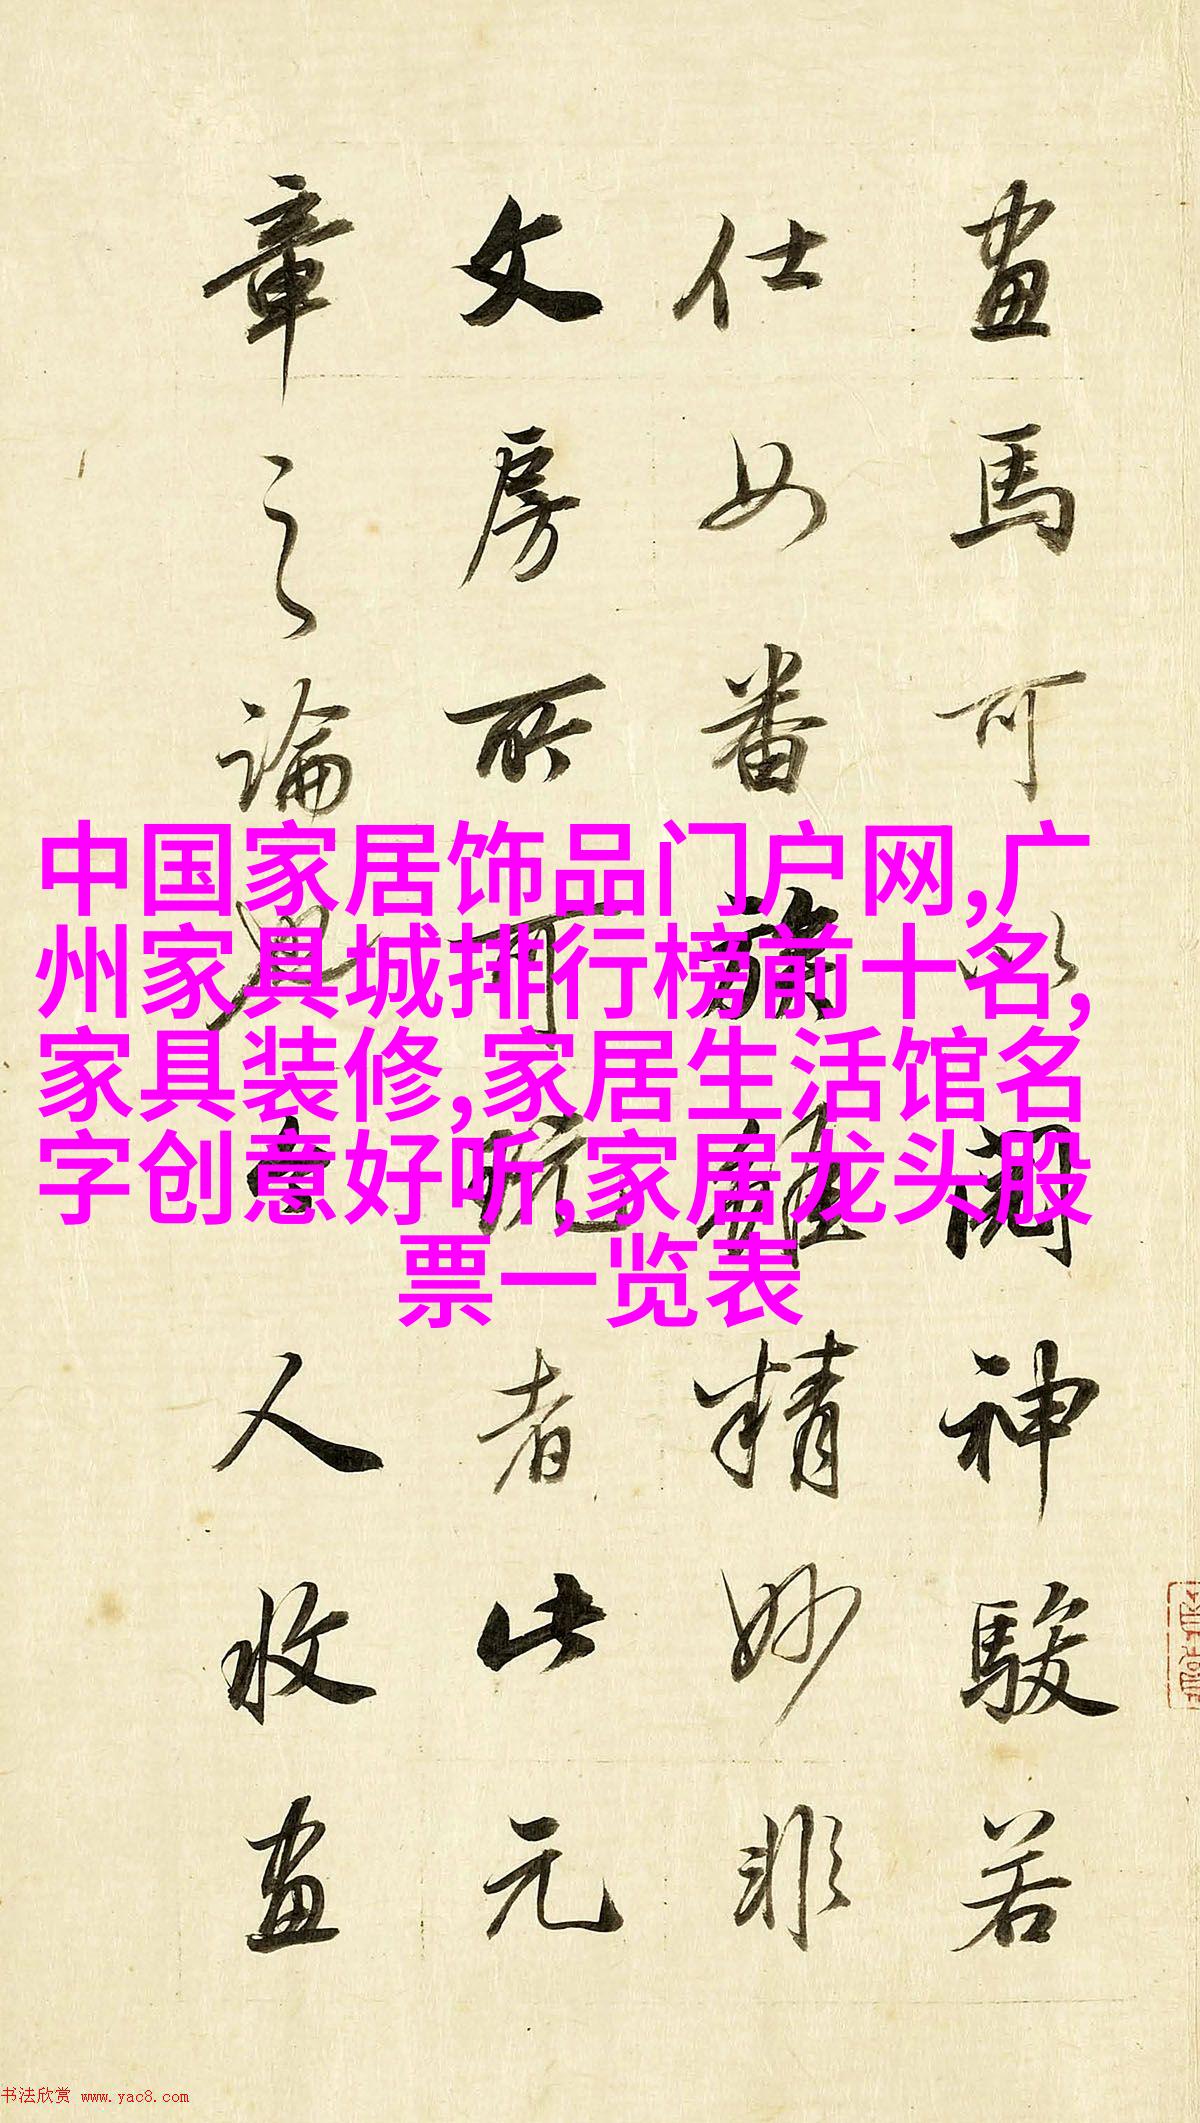 畫馬可以閱神駿若
仕女番族雖精妙非
文房所可玩者此元
章之論與今人收畫
中国家居饰品门户网,广
州家具城排行榜前十名,
家具装修,家居生活馆名
字创意好听,家居龙头股
票一览表
书法欣赏 www.yac8.com